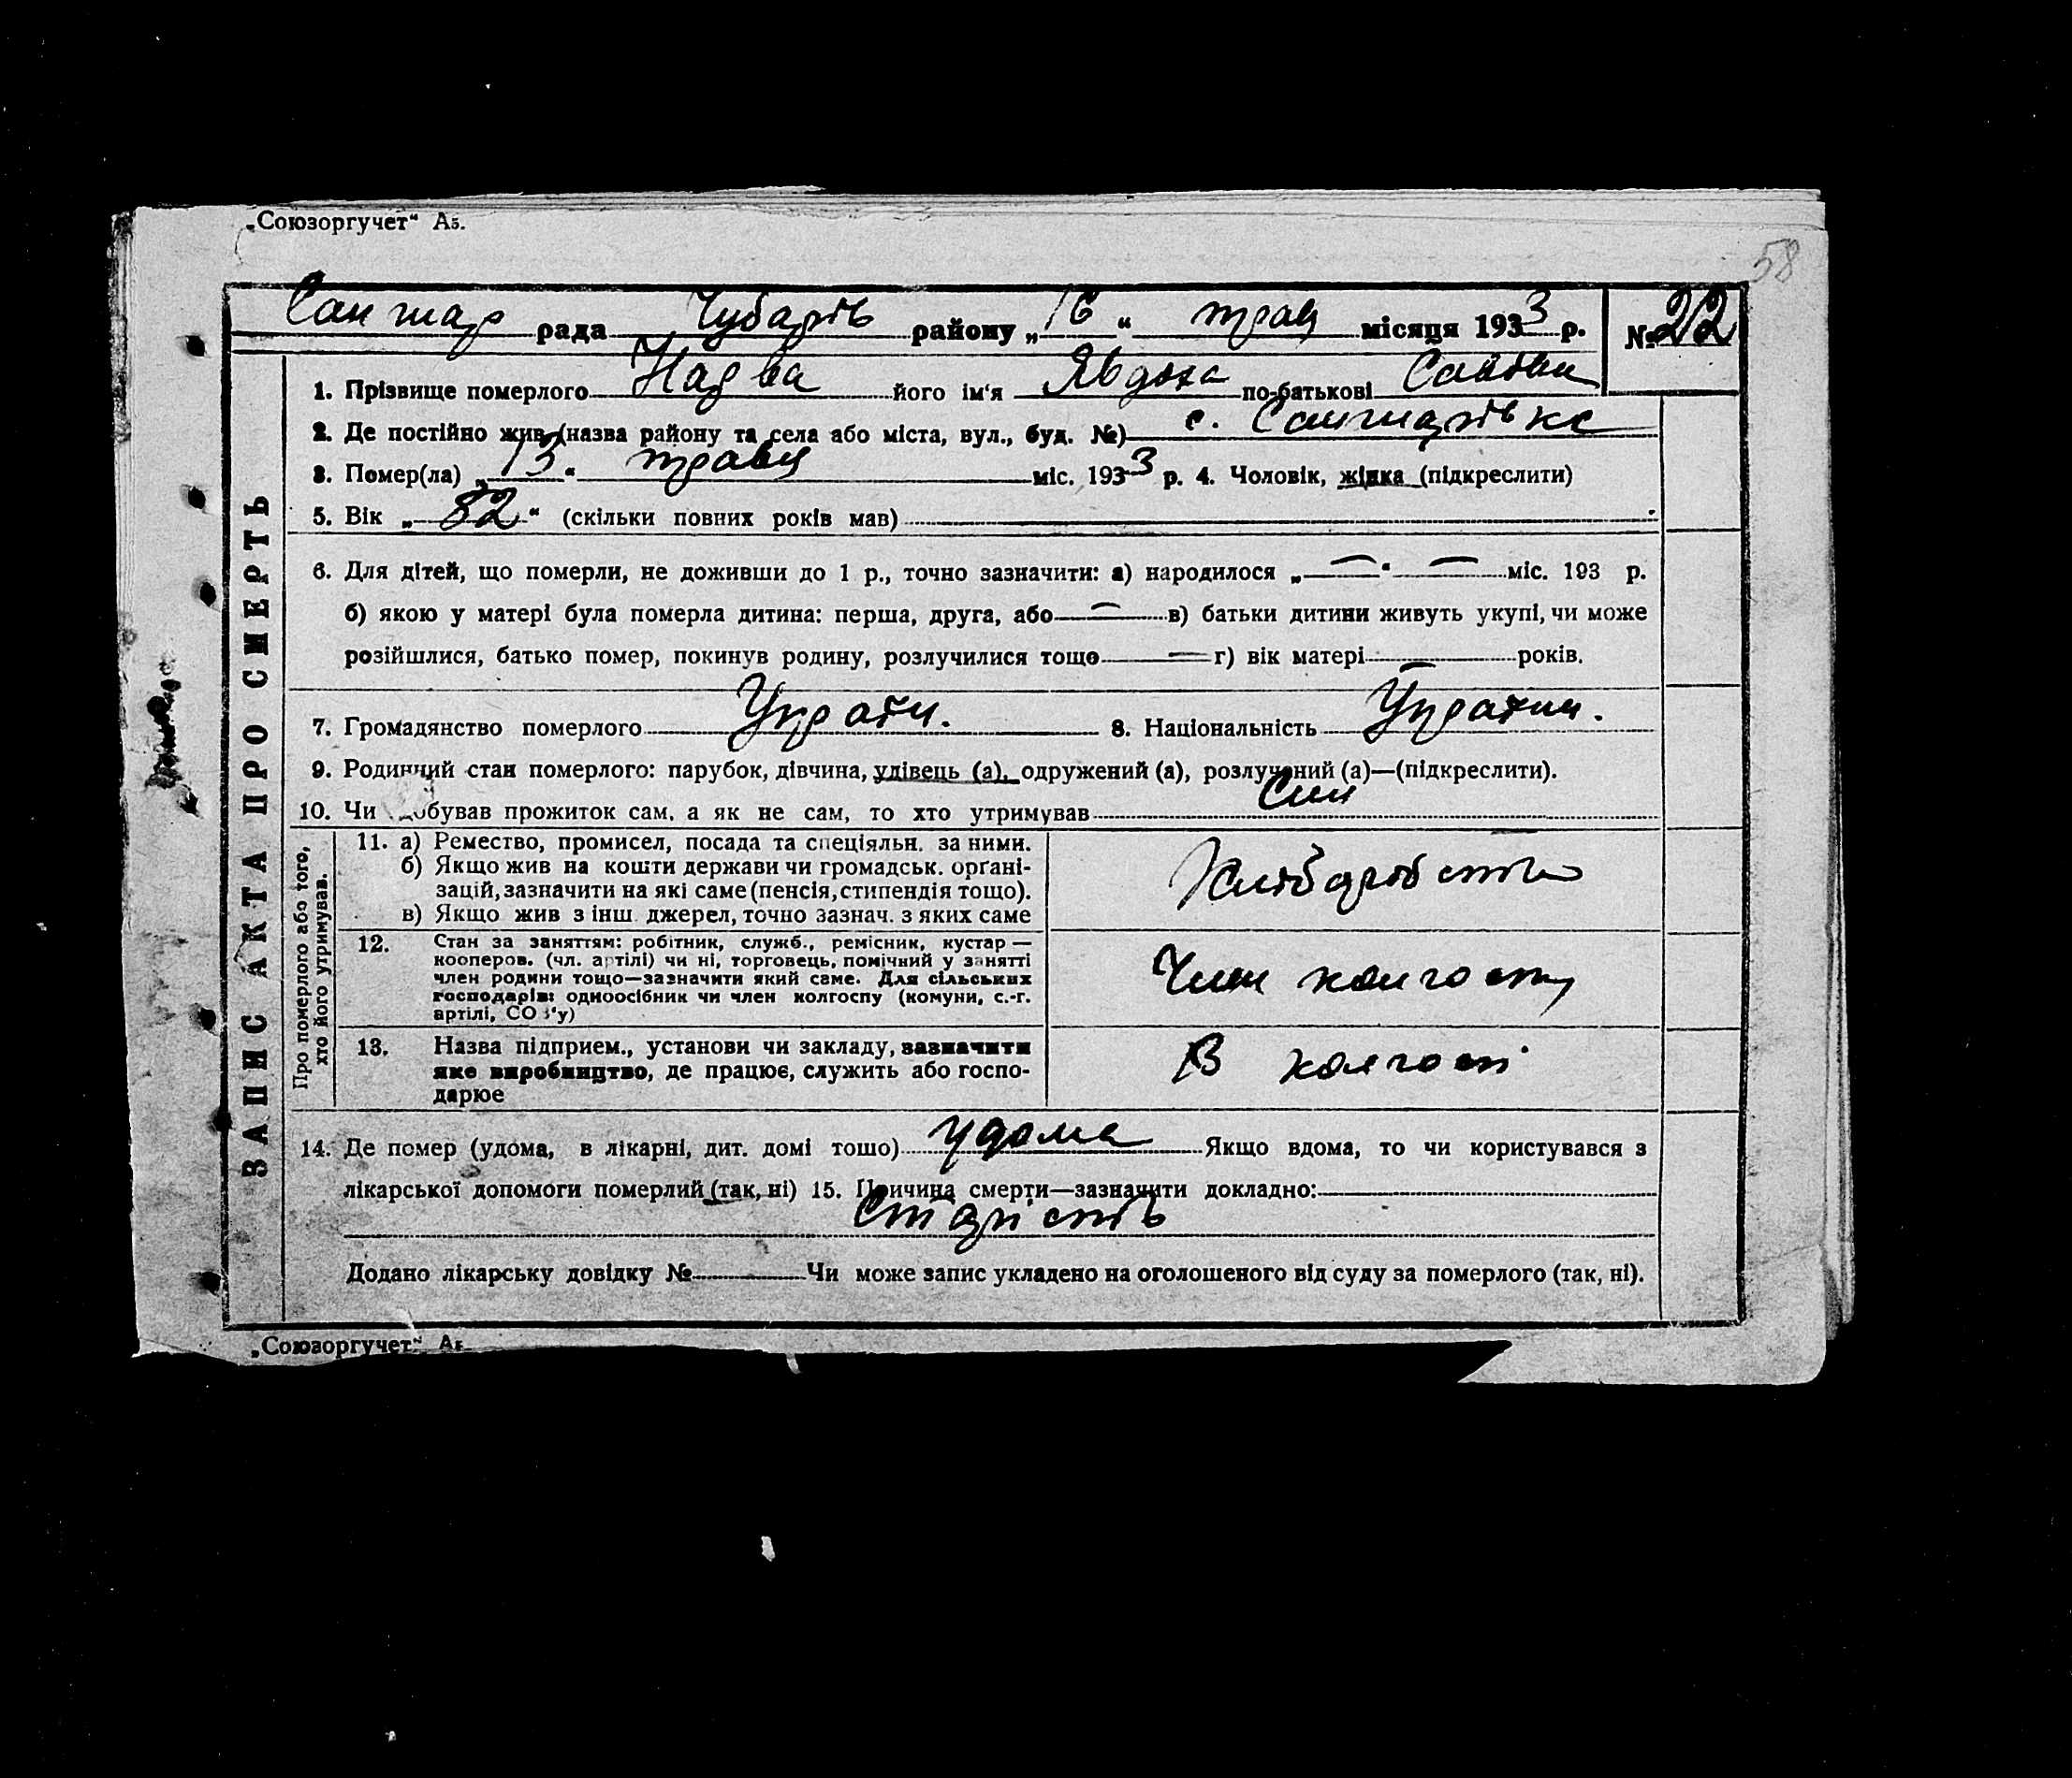 „Союзоргучет“ А5.
58
Санжар рада Чубарів району „16“ трав місяця 1933 р. № 212
1. Прізвище померлого його ім‘я Явдоха по-батькові
2. Де постійно жив (назва району та села або міста, вул., буд. №) с. Санжарівка
3. Помер(ла) „13“ травц міс. 1933 р. 4. Чоловік, жінка (підкреслити)
5. Вік „82“ (скільки повних років мав)
6. Для дітей, що померли, не доживши до 1 р., точно зазначити: а) народилося „—“ — міс. 193 р.
б) якою у матері була померла дитина: перша, друга, або — в) батьки дитини живуть укупі, чи може
розійшлися, батько помер, покинув родину, розлучилися тощо — г) вік матері — років.
7. Громадянство померлого 8. Національність Україн.
9. Родинний стан померлого: парубок, дівчина, удівець (а), одружений (а), розлучений (а)—(підкреслити).
10. Чи здобував прожиток сам, а як не сам, то хто утримував Син
ЗАПИС АКТА ПРО СМЕРТЬ
Про померлого або того,
хто його утримував.
11. а) Ремество, промисел, посада та спеціяльн. за ними.
б) Якщо жив на кошти держави чи громадськ. орґані-
зацій, зазначити на які саме (пенсія, стипендія тощо).
в) Якщо жив з інш. джерел, точно зазнач. з яких саме
Хліборобство
12. Стан за заняттям: робітник, служб., ремісник, кустар —
кооперов. (чл. артілі) чи ні, торговець, помічний у занятті
член родини тощо—зазначити який саме. Для сільських
господарів: одноосібник чи член колгоспу (комуни, с.-г.
артілі, СОЗ‘у)
Член колгоспу
13. Назва підприєм., установи чи закладу, зазначити
яке виробництво, де працює, служить або госпо-
дарює
В колгоспі
14. Де помер (удома, в лікарні, дит. домі тощо) удома Якщо вдома, то чи користувався з
лікарської допомоги померлий (так, ні) 15. Причина смерти—зазначити докладно:
Старість
Додано лікарську довідку № Чи може запис укладено на оголошеного від суду за померлого (так, ні).
„Союзоргучет“ А5.